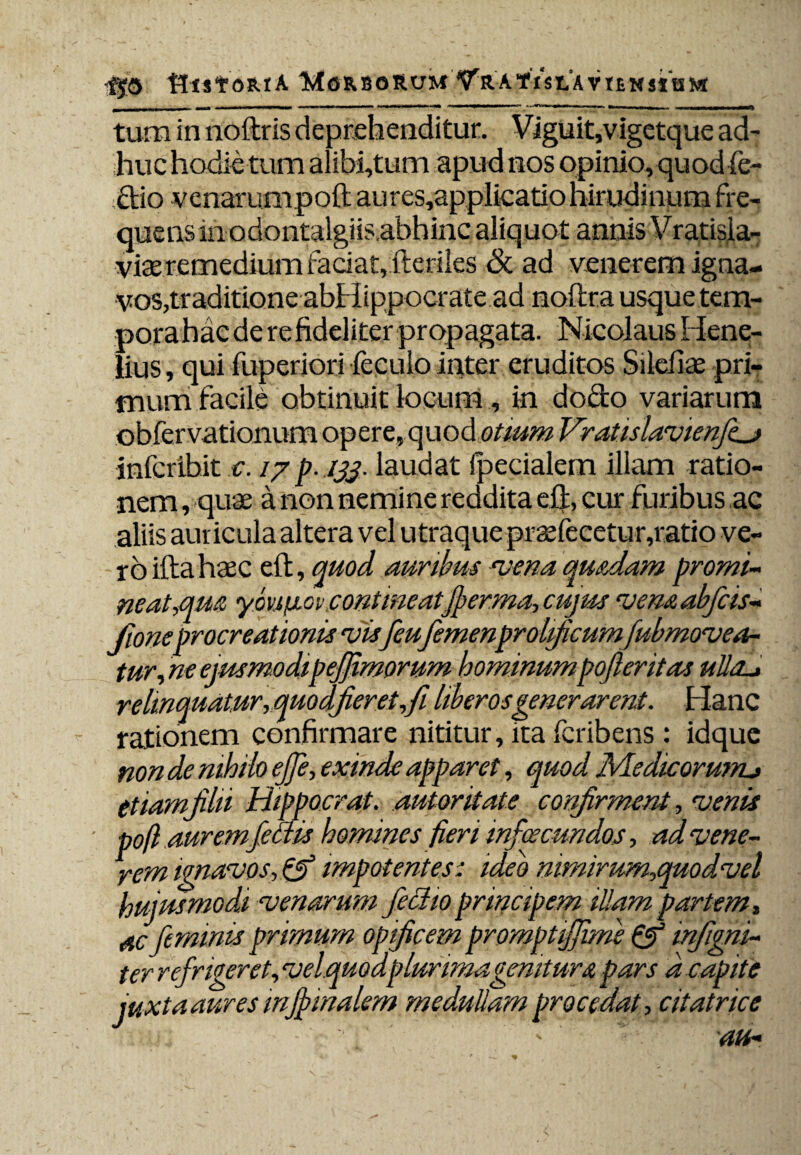 150 HISTORIA MORBORUM VRATISLAVIENSIUM
tum in noſtris deprehenditur. Viguit,vigetque ad-
huc hodie tum alibi,tum apud nos opinio, quod ſe-
ctio venarum poſt aures,applicatio hirudinum fre-
quens in odontalgiis abhinc aliquot annis Vratisla-
viæ remedium faciat, ſteriles & ad venerem igna-
vos,traditione ab Hippocrate ad noſtra usque tem-
pora hâc de re fideliter propagata. Nicolaus Hene-
lius, qui ſuperiori ſeculo inter eruditos Sileſiæ pri-
mum facilè obtinuit locum, in docto variarum
obſervationum opere, quod otium Vratislavienſe
inſcribit c. 17 p. 133. laudat ſpecialem illam ratio-
nem, quæ à non nemine reddita eſt, cur furibus ac
aliis auricula altera vel utraque præſecetur,ratio ve-
rò iſta hæc eſt, quod auribus vena quædam promi-
neat,quæ γόνιμον contineat ſperma, cujus venæ abſcis-
ſione procreationis vis ſeu ſemen prolificum ſubmovea-
tur, ne ejusmodi peſſimorum hominum poſteritas ulla
relinquatur, quod fieret, ſi liberos generarent. Hanc
rationem confirmare nititur, ita ſcribens: idque
non de nihilo eſſe, exinde apparet, quod Medicorum
etiam filii Hippocrat. autoritate confirment, venis
poſt aurem ſectis homines fieri infœcundos, ad vene-
rem ignavos, & impotentes: ideò nimirum,quod vel
hujusmodi venarum ſectio principem illam partem,
ac ſeminis primum opificem promptiſſimè & inſigni-
ter refrigeret, vel quod plurima genituræ pars à capite
juxta aures in ſpinalem medullam procedat, citatrice
au-